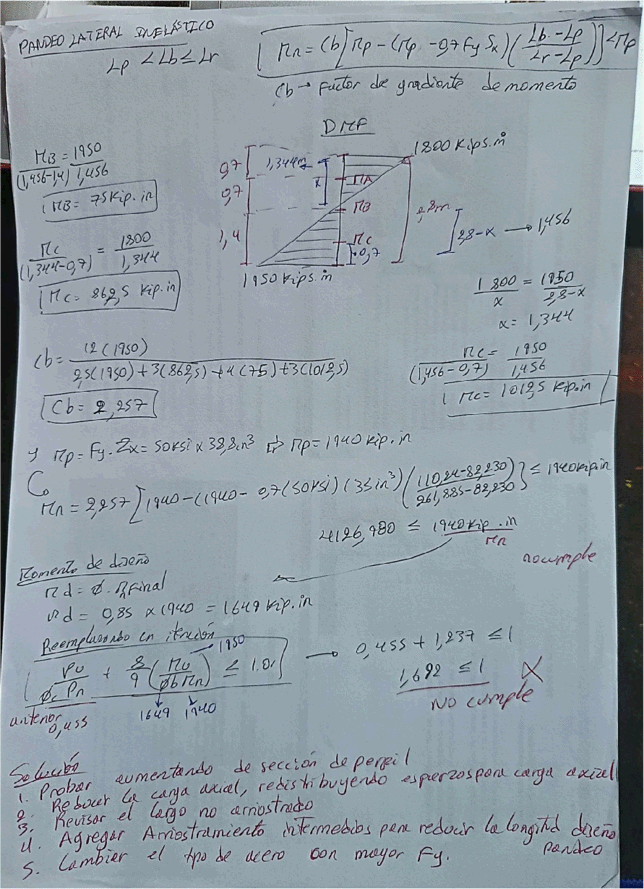 PANDEO LATERAL INELÁSTICO
Lp < Lb ≤ Lr
Mn = Cb [Mp - (Mp - 0,7 Fy Sx) (Lb - Lp / Lr - Lp)] < Mp
Cb → Factor de gradiente de momento
DMF
MB / (1,456-1,4) = 1950 / 1,456
MB = 75 Kip.in
Mc / (1,344-0,7) = 1800 / 1,344
Mc = 862,5 Kip.in
0,7
0,7
1,4
1,344m
x
MA
MB
Mc
0,7
1800 Kips.in
1950 Kips.in
2,8m
2,8-x → 1,456
1800 / x = 1950 / 2,8-x
x = 1,344
Mc / (1,456-0,7) = 1950 / 1,456
Mc = 1012,5 Kip.in
Cb = 12(1950) / 2,5(1950) + 3(862,5) + 4(75) + 3(1012,5)
Cb = 2,257
y Mp = Fy. Zx = 50ksi x 38,8in³ ⇒ Mp = 1940 kip. in
Mn = 2,257 [1940 - (1940 - 0,7(50ksi)(35in³) (110,24-82,230 / 261,885-82,230)] ≤ 1940kip.in
4126,980 ≤ 1940 kip.in
Mn
no cumple
Momento de diseño
Md = Ø. Mfinal
Md = 0,85 x 1940 = 1649 kip.in
Reemplazando en
Pu / Øc Pn + 8/9 (Mu / Øb Mn) ≤ 1.0
1950
anterior
0,455
1649
1940
→ 0,455 + 1,237 ≤ 1
1,692 ≤ 1 X
NO cumple
Solución
1. Probar aumentando de sección de perfil
2. Reducir la carga axial, redistribuyendo esfuerzos para carga axial
3. Revisar el largo no arriostrado
4. Agregar Arriostramiento intermedios para reducir la longitud diseño
pandeo
5. Cambiar el tipo de acero con mayor Fy.